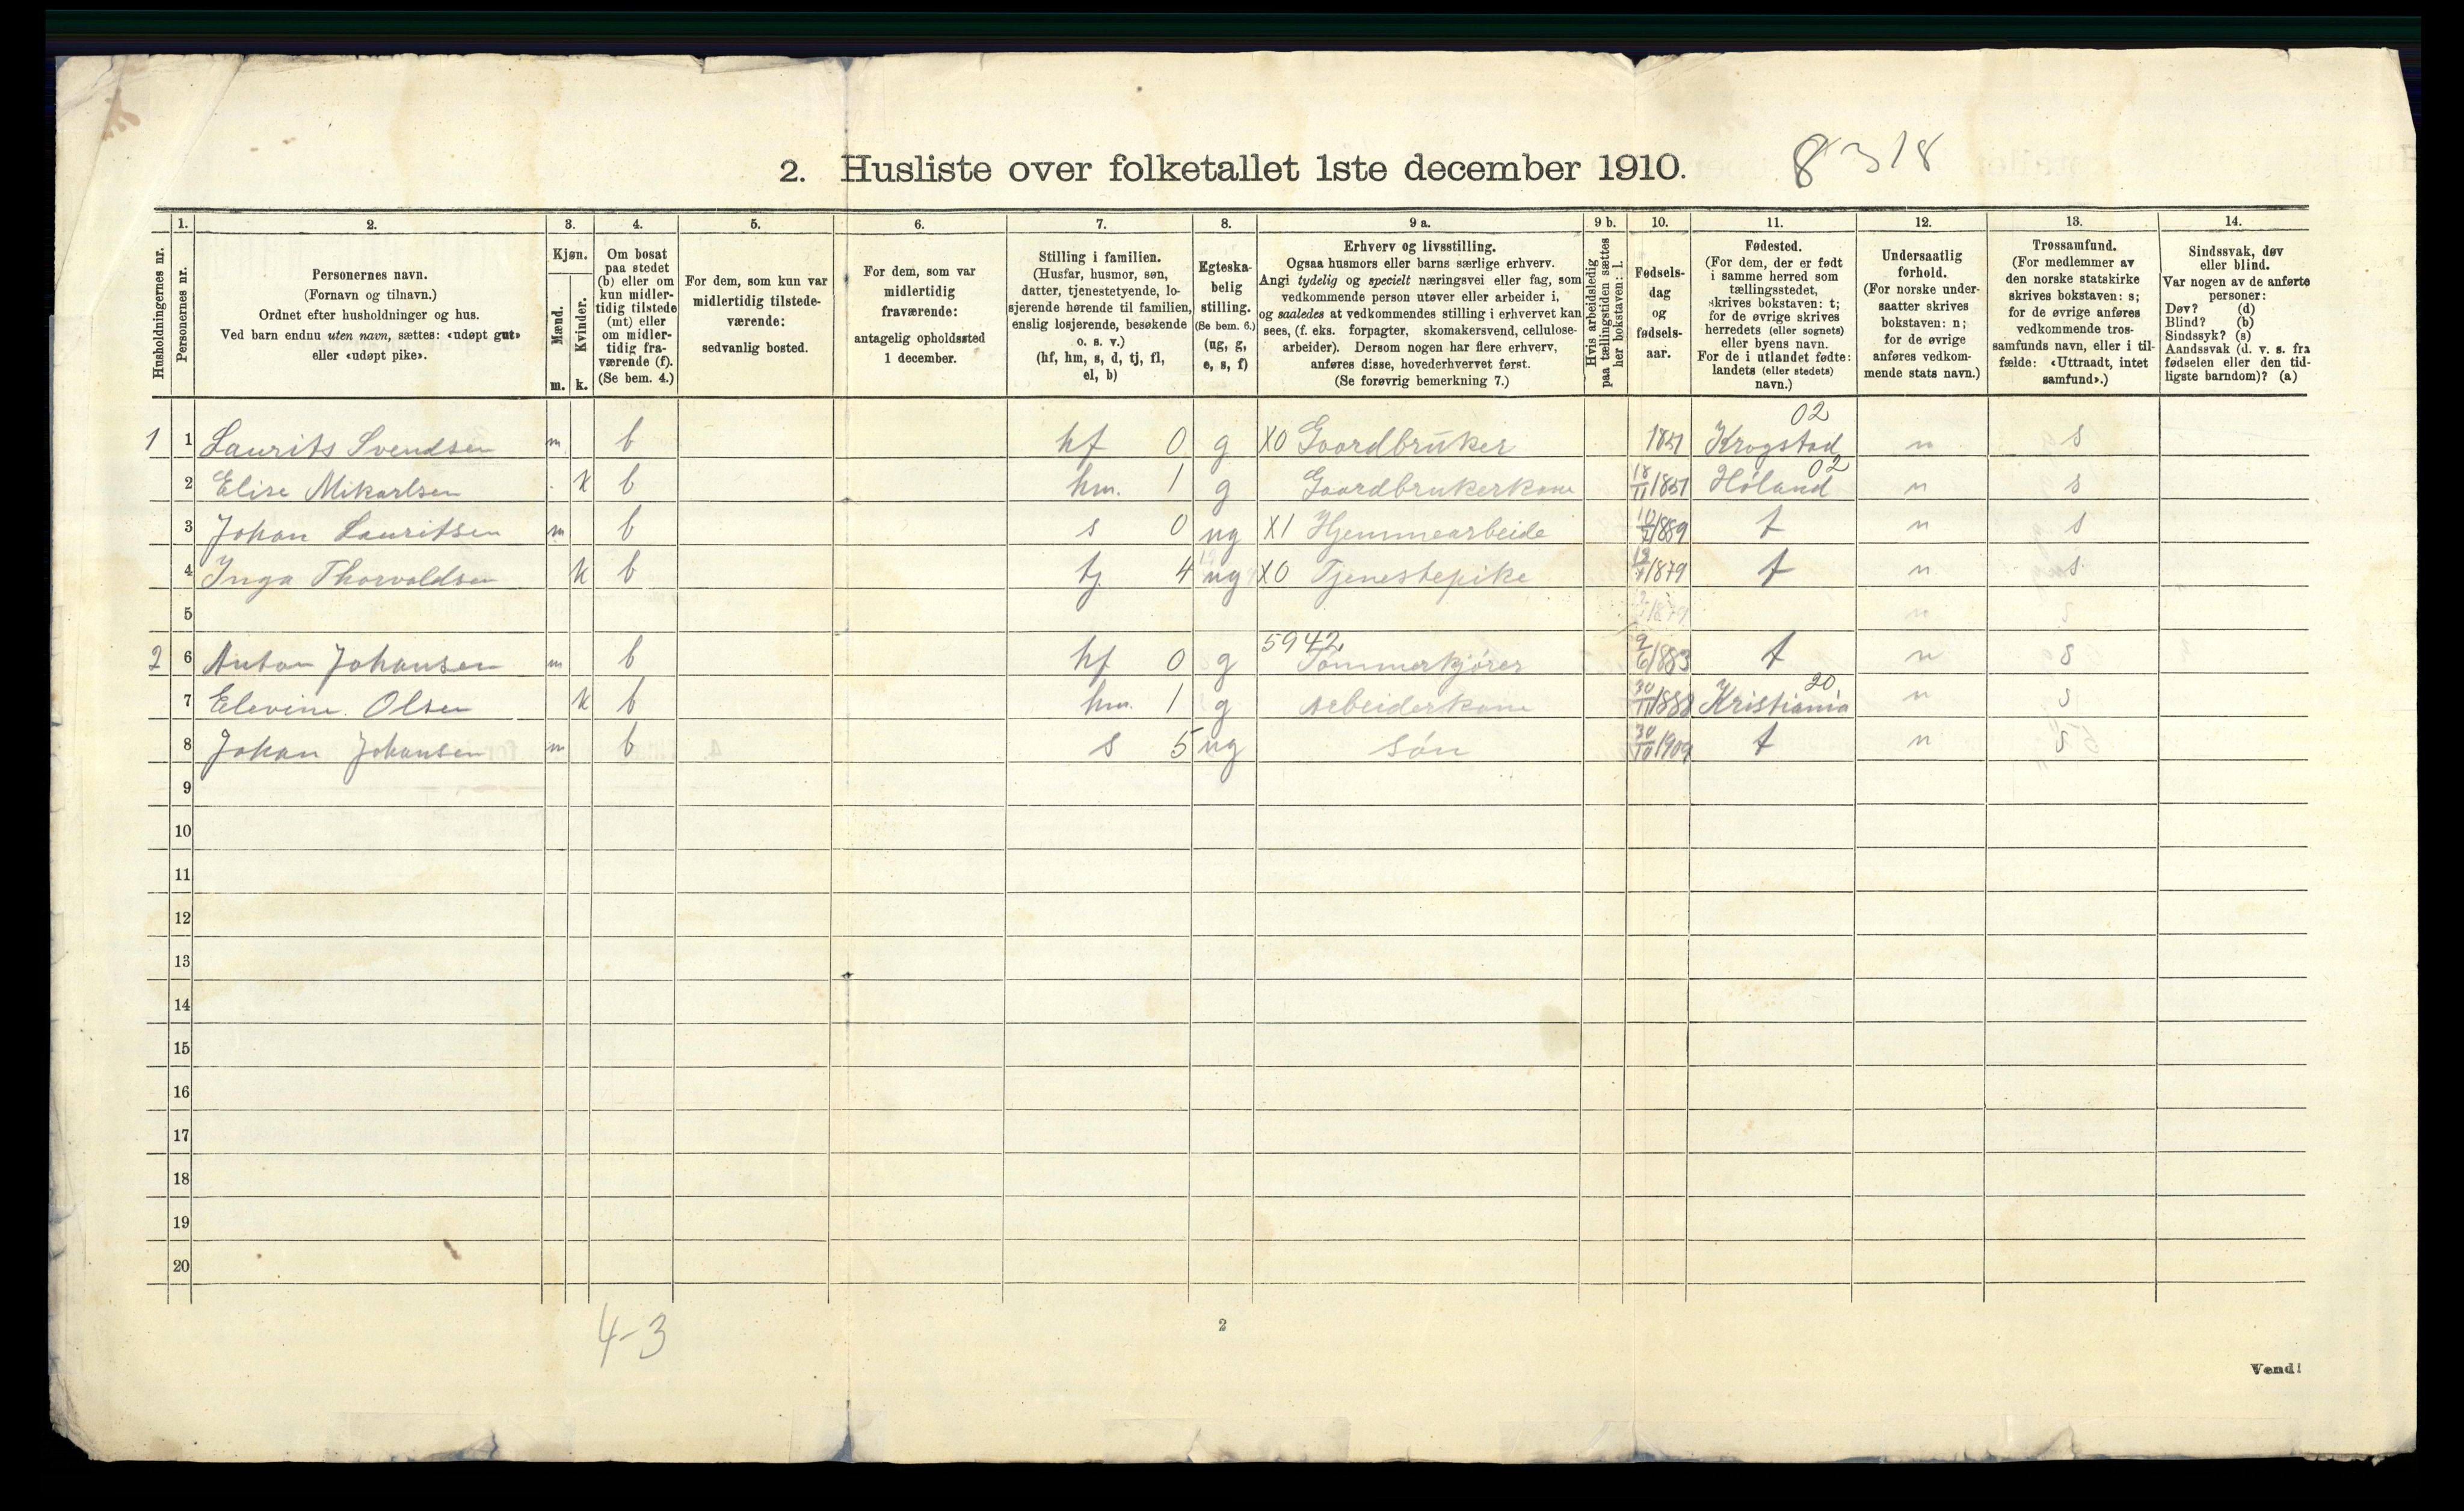 2. Husliste over folketallet 1ste december 1910. 8318
Husholdningernes nr.
1.
Personernes nr.
2.
Personernes navn.
(Fornavn og tilnavn.)
Ordnet efter husholdninger og hus.
Ved barn endnu uten navn, sættes: «udøpt gut»
eller «udøpt pike».
3.
Kjøn.
Mænd.
m.
Kvinder.
k.
4.
Om bosat
paa stedet
(b) eller om
kun midler-
tidig tilstede
(mt) eller
om midler-
tidig fra-
værende (f).
(Se bem. 4.)
5.
For dem, som kun var
midlertidig tilstede-
værende:
sedvanlig bosted.
6.
For dem, som var
midlertidig
fraværende:
antagelig opholdssted
1 december.
7.
Stilling i familien.
(Husfar, husmor, søn,
datter, tjenestetyende, lo-
sjerende hørende til familien,
enslig losjerende, besøkende
o. s. v.)
(hf, hm, s, d, tj, fl,
el, b)
8.
Egteska-
belig
stilling.
(Se bem. 6.)
(ug, g,
e, s, f)
9 a.
Erhverv og livsstilling.
Ogsaa husmors eller barns særlige erhverv.
Angi tydelig og specielt næringsvei eller fag, som
vedkommende person utøver eller arbeider i,
og saaledes at vedkommendes stilling i erhvervet kan
sees, (f. eks. forpagter, skomakersvend, cellulose-
arbeider). Dersom nogen har flere erhverv,
anføres disse, hovederhvervet først.
(Se forøvrig bemerkning 7.)
9 b.
Hvis arbeidsledig
paa tællingstiden sættes
her bokstaven: l.
10.
Fødsels-
dag
og
fødsels-
aar.
11.
Fødested.
(For dem, der er født
i samme herred som
tællingsstedet,
skrives bokstaven: t;
for de øvrige skrives
herredets (eller sognets)
eller byens navn.
For de i utlandet fødte:
landets (eller stedets)
navn.)
12.
Undersaatlig
forhold.
(For norske under-
saatter skrives
bokstaven: n;
for de øvrige
anføres vedkom-
mende stats navn.)
13.
Trossamfund.
(For medlemmer av
den norske statskirke
skrives bokstaven: s;
for de øvrige anføres
vedkommende tros-
samfunds navn, eller i til-
fælde: «Uttraadt, intet
samfund».)
14.
Sindssvak, døv
eller blind.
Var nogen av de anførte
personer:
Døv? (d)
Blind? (b)
Sindssyk? (s)
Aandssvak (d. v. s. fra
fødselen eller den tid-
ligste barndom)? (a)
02
1 1 Laurits Svendsen m b hf 0 g X0 Gaardbruker 1851 Krogstad n s
02
2 Elise Mikarlsen k b hm. 1 g Gaardbrukerkone 18/11 1851 Høland n s
3 Johan Lauritsen m b s 0 ug X1 Hjemmearbeide 1889 t n s
4 Inga Thorvoldsen k b tj 4 ug X0 Tjenestepike 1879 t n s
5 1879 n s
5942
2 6 Anton Johansen m b hf 0 g Tømmerkjører 9/6 1883 t n s
20
7 Elevine Olsen k b hm. 1 g Arbeiderkone 30/11 1888 Kristiania n s
8 Johan Johansen m b s 5 ug søn 30/10 1909 t n s
9
10
11
12
13
14
15
16
17
18
19
20
4-3
2
Vend!